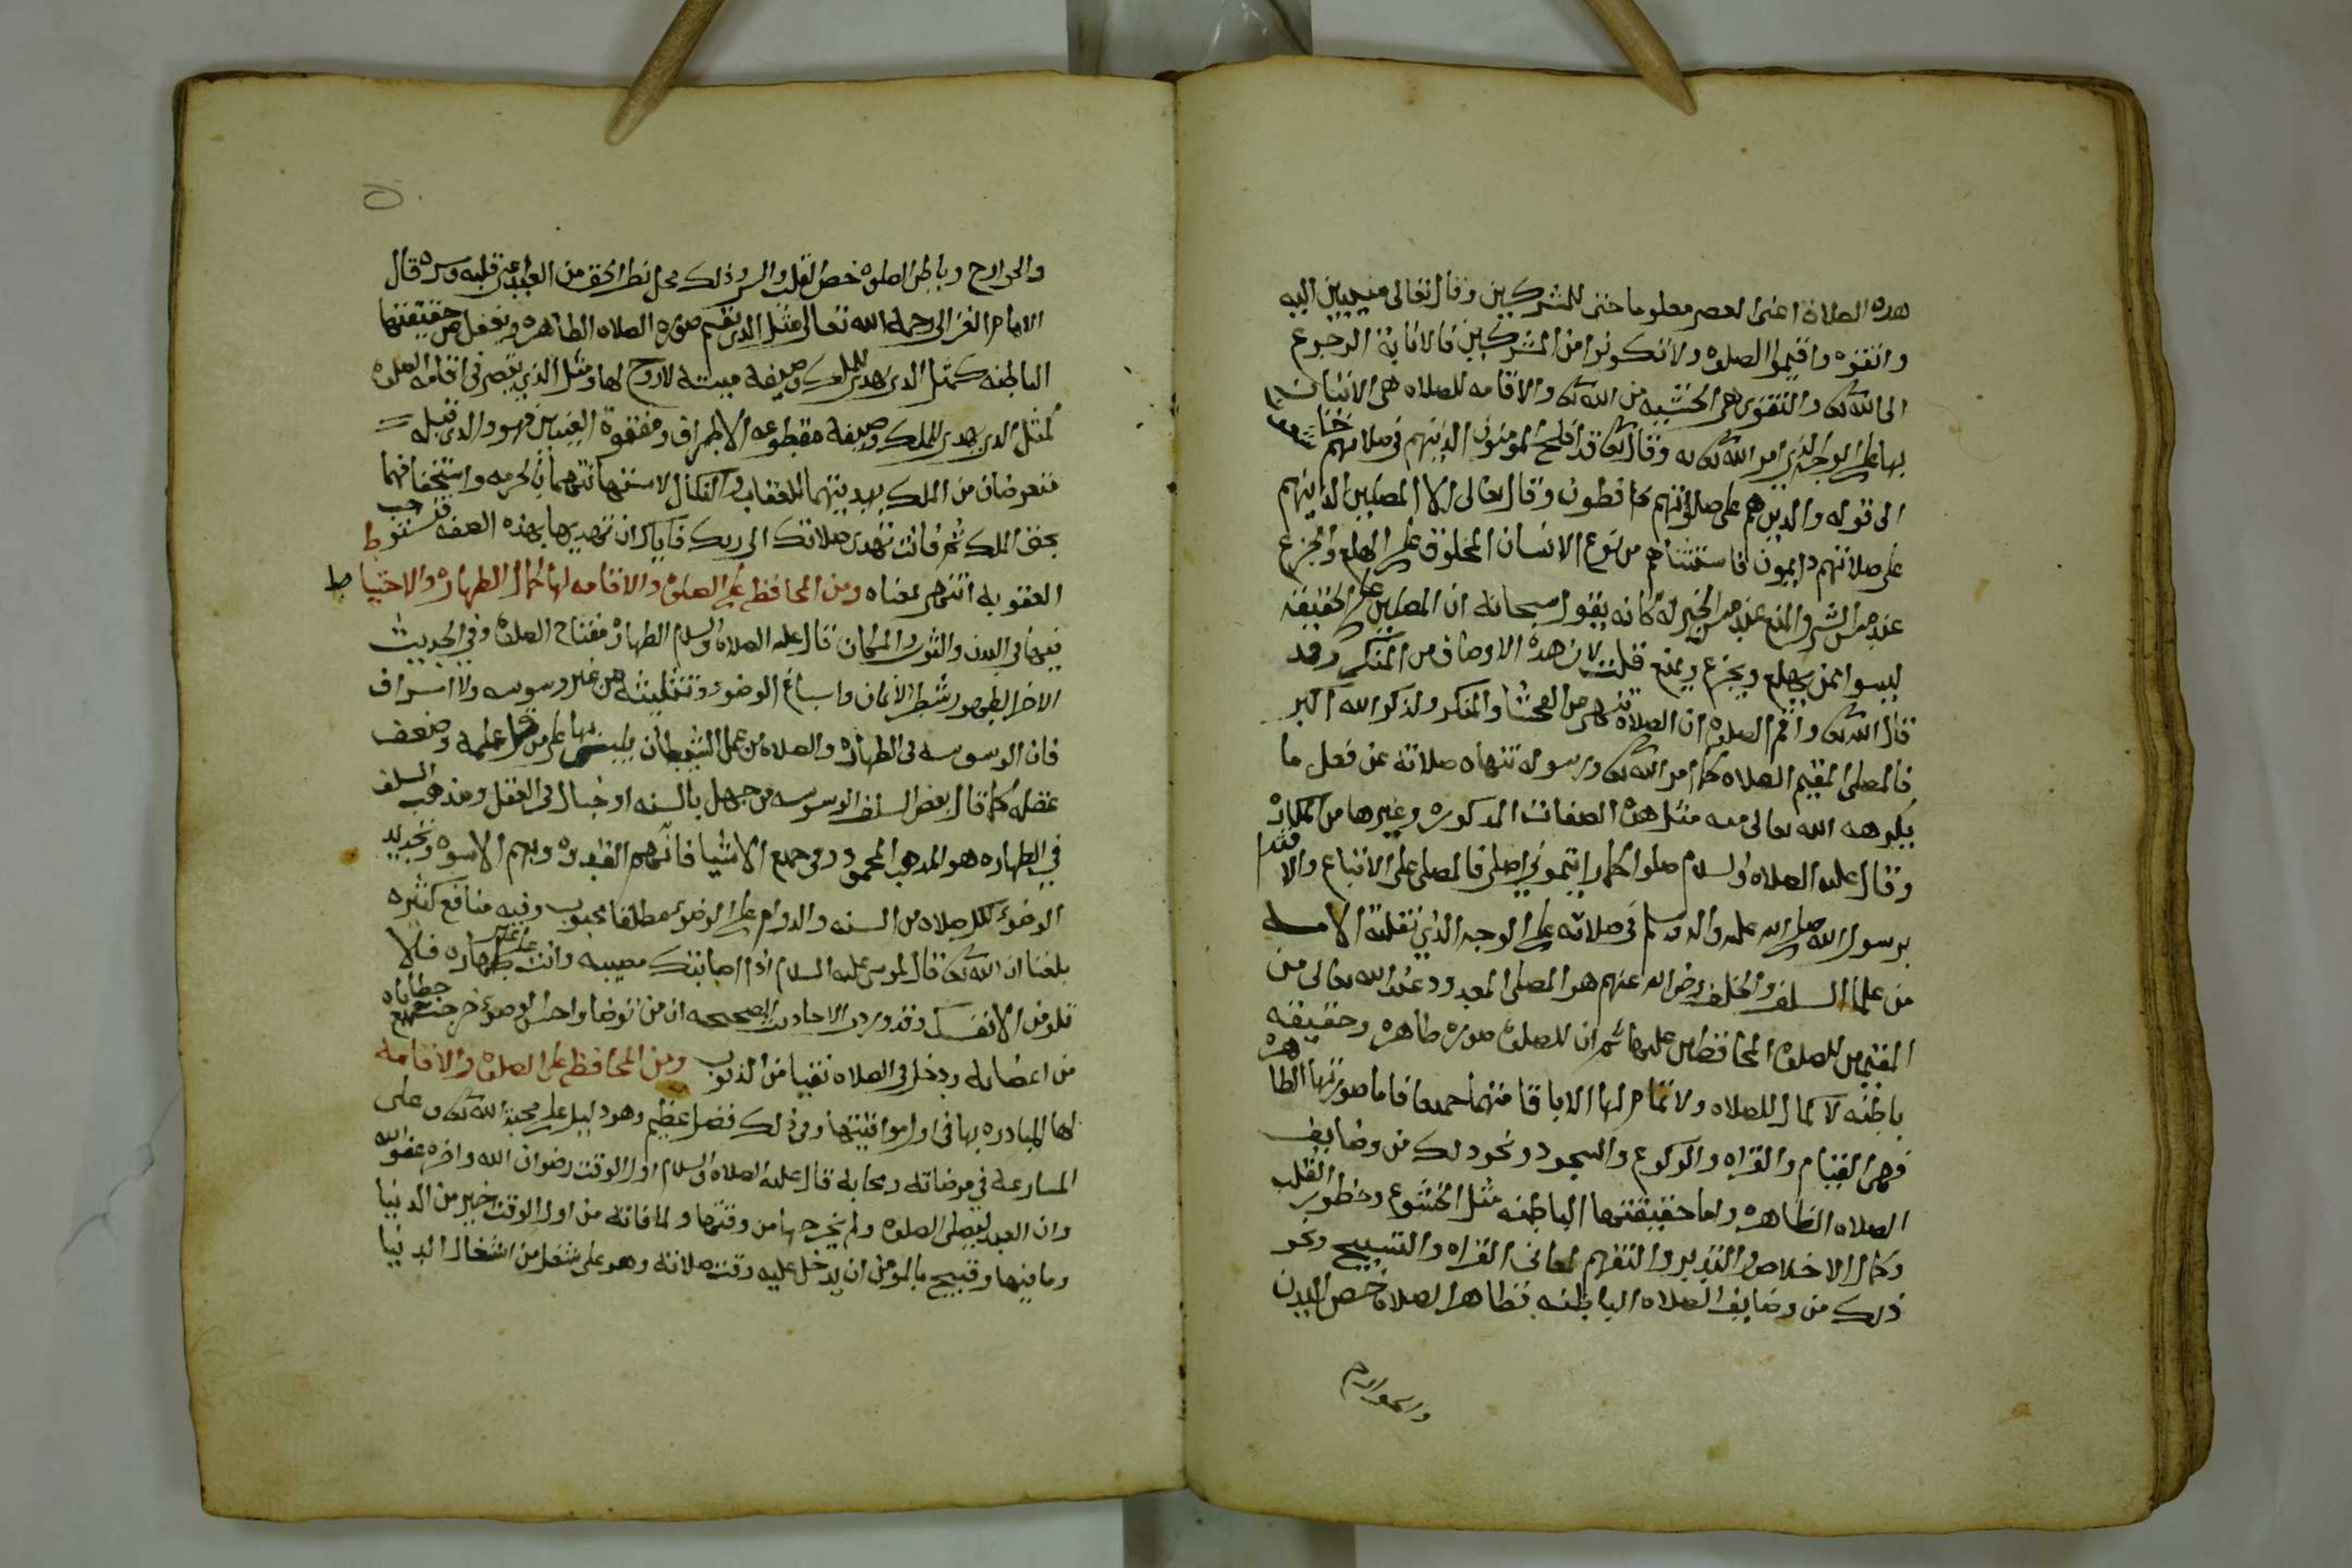 هذه الصلاة اعنى العصر معلوما حتى للمشركين وقال تعالى منيبين اليه
واتقوه واقيموا الصلوه ولا تكونوا من المشركين فالانابة الرجوع
الى الله تعالى والتقوى هى الخشيه من الله تعالى والاقامه للصلاه هى الاتيان
بها على الوجه الذى امر الله تعالى به وقال تعالى قد افلح المومنون الذين هم فى صلاتهم خاشعون
الى قوله والذين هم على صلواتهم يحافظون وقال تعالى الا المصلين الذين هم
على صلاتهم دايمون فاستثناهم من نوع الانسان المخلوق على الهلع والجزع
عند مس الشر والمنع عند مس الخير له كانه يقول سبحانه ان المصلين على الحقيقة
ليسوا ممن يهلع ويجزع ويمنع قلت لان هذه الاوصاف من المنكر وقد
قال الله تعالى واقم الصلوه ان الصلاه تنهى عن الفحشا والمنكر ولذكر الله اكبر
فالمصلى المقيم الصلاه كما امر الله تعالى ورسوله تنهاه صلاته عن فعل ما
يكرهه الله تعالى منه مثل هذه الصفات المذكوره وغيرها من المكاره
وقال عليه الصلاه والسلام صلوا كما رايتمونى اصلى فالمصلى على الاتباع والاقتدا
برسول الله صلى الله عليه واله وسلم فى صلاته على الوجه الذى نقلته الامه
من علما السلف والخلف رضى الله عنهم هو المصلى المعدود عند الله تعالى من
المقيمين للصلوة المحافظين عليها ثم ان للصلوة صوره ظاهره وحقيقه
باطنه لا كمال للصلاه ولا تمام لها الا باقامتهما جميعا فاما صورتها الظاهره
فهى القيام والقراه والركوع والسجود ونحو ذلك من وضايف
الصلاه الظاهره واما حقيقتها الباطنه مثل الخشوع وحضور القلب
وكمال الاخلاص والتدبر والتفهم لمعانى القراه والتسبيح ونحو
ذلك من وضايف الصلاه الباطنه فظاهر الصلاة خص البدن
والجوارح
والجوارح وباطن الصلوه خص القلب والسر وذلك محل نظر الحق من العبد اعنى قلبه وسره قال
الامام الغزالى رحمه الله تعالى مثل الذى يقيم صوره الصلاه الظاهره ويغفل عن حقيقتها
الباطنه كمثل الذى يهدى للملك وصيفه ميته لا روح لها ومثل الذى يقصر فى اقامه الصلوة
كمثل الذى يهدى للملك وصيفه مقطوعه الاطراف مفقوة العينين فهو والذى قبله
متعرضان من الملك بهديتهما للعقاب والنكال لاستهانتهما بالحرمه واستخفافهما
بحق الملك ثم فانت تهدى صلاتك الى ربك فاياك ان تهديها بهذه الصفه فتستوجب
العقوبه انتهى بمعناه ومن المحافظه على الصلوة والاقامه لها كمال الطهاره والاحتياط
فيها فى البدن والثوب والمكان قال عليه الصلاه والسلام الطهاره مفتاح الصلاة وفى الحديث
الاخر الطهور شطر الايمان واسباغ الوضوء وتثليثه من غير وسوسه ولا اسراف
فان الوسوسه فى الطهاره والصلاه من عمل الشيطان يلبس بها على من قل علمه وضعف
عقله كما قال بعض السلف الوسوسه من جهل بالسنه او خبال فى العقل ومذهب السلف
فى الطهاره هو المذهب المحمود وفى جميع الاشيا فانهم القدوه وبهم الاسوه وتجديد
الوضوء لكل صلاه من السنه والدوام على الوضوء مطلقا محبوب وفيه منافع كثيره
بلغنا ان الله تعالى قال لموسى عليه السلام اذا اصابتك مصيبه وانت على غير طهاره فلا
تلومن الا نفسك وقد وردت الاحاديث الصحيحه ان من توضا واحسن الوضوء خرجت جميع خطاياه
من اعضايه ودخل فى الصلاه نقيا من الذنوب ومن المحافظه على الصلوة والاقامه
لها المبادره بها فى اول مواقيتها وفى ذلك فضل عظيم وهو دليل على محبة الله تعالى وعلى
المسارعه فى مرضاته ومحابه قال عليه الصلاه والسلام اول الوقت رضوان الله واخره عفو الله
وان العبد ليصلى الصلوه ولم يخرجها من وقتها ولما فاته من اول الوقت خير من الدنيا
وما فيها وقبيح بالمومن ان يدخل عليه وقت صلاته وهو على شغل من اشغال الدنيا